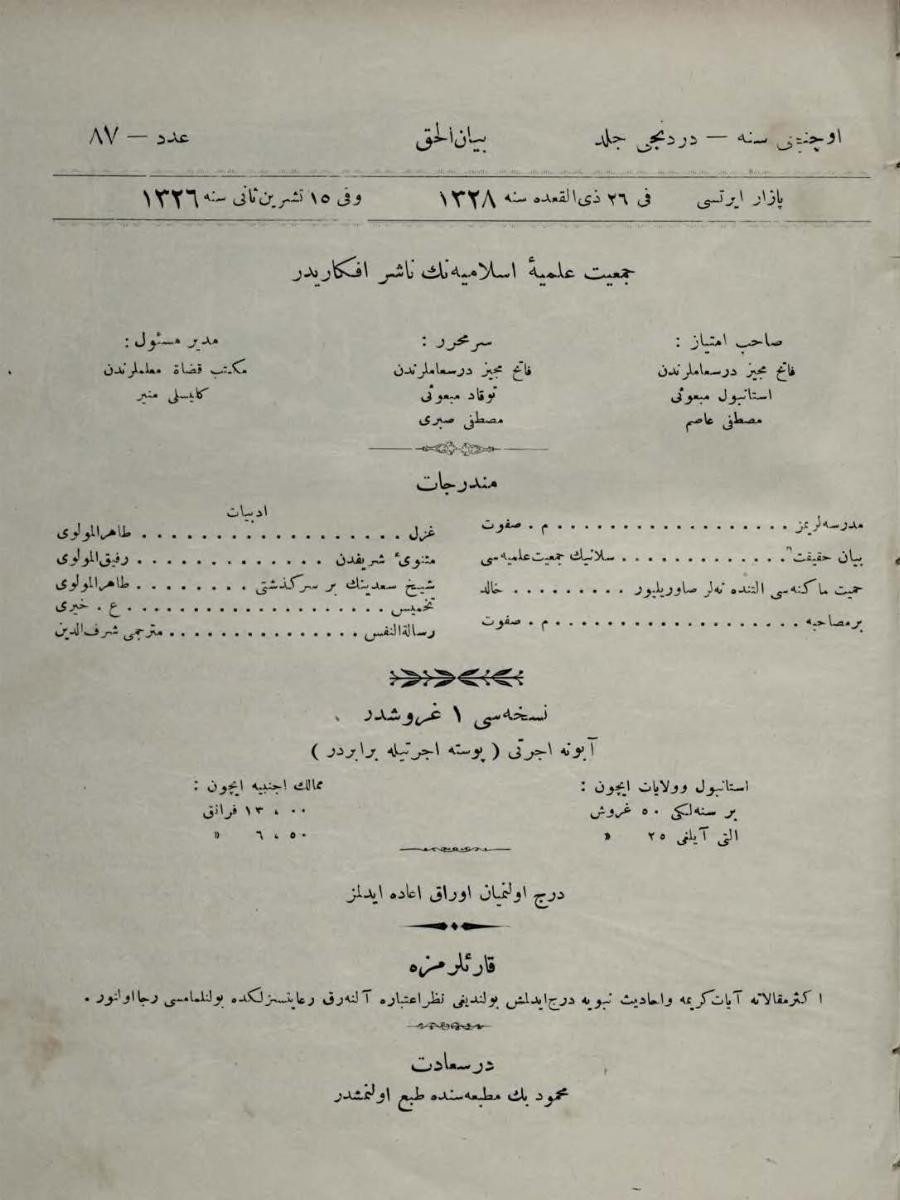 اوچنجی سنه — دردنجی جلد بیان‌الحق عدد — ٨٧
پازار ایرتسی فی ٢٦ ذی‌القعده سنه ١٣٢٨ وفی ١٥ تشرین ثانی سنه ١٣٢٦
جمعیت علمیهٔ اسلامیه‌نك ناشر افكاریدر
صاحب امتیاز :
فاتح مجیز درسعاملرندن
استانبول مبعوثی
مصطفی عاصم
سر محرر :
فاتح مجیز درسعاملرندن
توقاد مبعوثی
مصطفی صبری
مدیر مسئول :
مكتب قضاة معلملرندن
كلیسلی منیر
مندرجات
مدرسه‌لریمز . . . . . . . . . . . . . . . . . . م . صفوت
بیان حقیقت . . . . . . . . . . . سلانیك جمعیت علمیه‌سی
حمیت ماكنه‌سی التنده نه‌لر صاوریلیور . . . . . . . . . خالد
بر مصاحبه . . . . . . . . . . . . . . . . . . م . صفوت
ادبیات
غزل . . . . . . . . . . . . . . . . . . طاهرالمولوی
مثنویٔ شریفدن . . . . . . . . . . . . . رفیق‌المولوی
شیخ سعدینك بر سركذشتی . . . . . . . . طاهرالمولوی
تخمیس . . . . . . . . . . . . . . . . . . ع . خیری
رسالةالنفس . . . . . . . . . . . . . . مترجمی شرف‌الدین
نسخه‌سی ١ غروشدر
آبونه اجرتی ( پوسته اجرتیله برابردر )
استانبول وولایات ایچون :
بر سنه‌لكی ٥٠ غروش
التی آیلغی ٢٥ »
ممالك اجنبیه ایچون :
١٣،٠٠ فرانق
٦،٥٠ »
درج اولنمیان اوراق اعاده ایدلمز
قارئلرمزه
اكثر مقالاته آیات كریمه واحادیث نبویه درج ایدلمش بولندیغی نظر اعتباره آلنه‌رق رعایتسزلكده بولنلمامسی رجا اولنور .
درسعادت
محمود بك مطبعه‌سنده طبع اولنمشدر